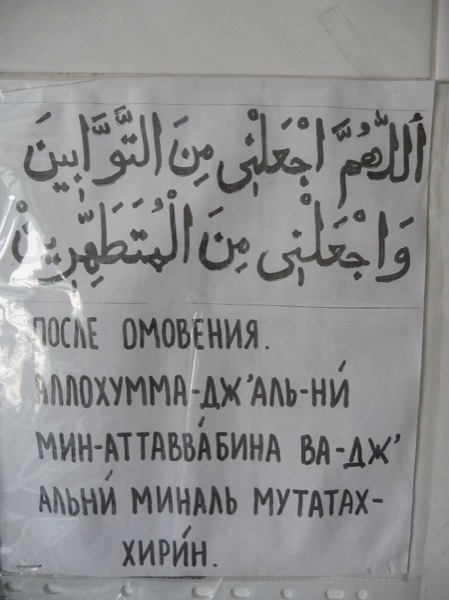 اَللّٰهُمَّ اجْعَلْنِى مِنَ التَّوَّابِينَ
وَاجْعَلْنِى مِنَ الْمُتَطَهِّرِينْ
ПОСЛЕ ОМОВЕНИЯ.
АЛЛОХУММА-ДЖ'АЛЬ-НИ́
МИН-АТТАВВА́БИНА ВА-ДЖ'
АЛЬНИ́ МИНАЛЬ МУТАТАХ-
ХИРИ́Н.